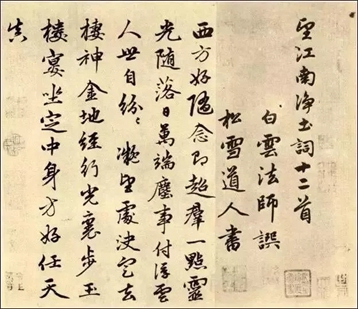 望江南淨土詞十二首
白雲法師譔
松雪道人書
西方好隨念即超群一點靈
光隨落日萬端塵事付浮雲
人世自紛〻凝望處決定去
棲神金地經行光裏步玉
樓宴坐定中身方好任天
真